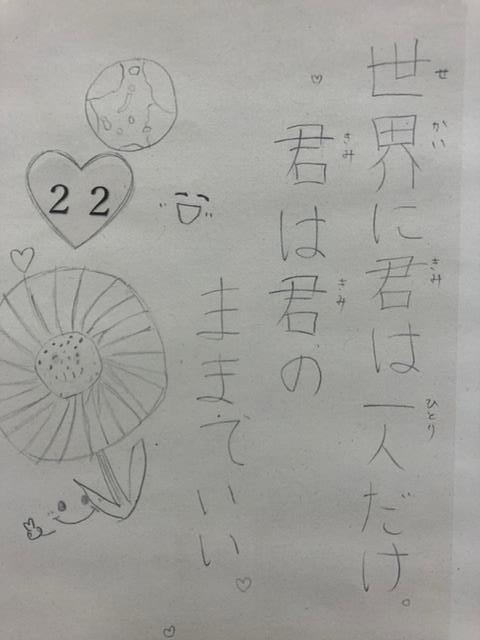 世界に君は一人だけ。
せかい きみ ひとり
君は君の
きみ きみ
ままでいい
22